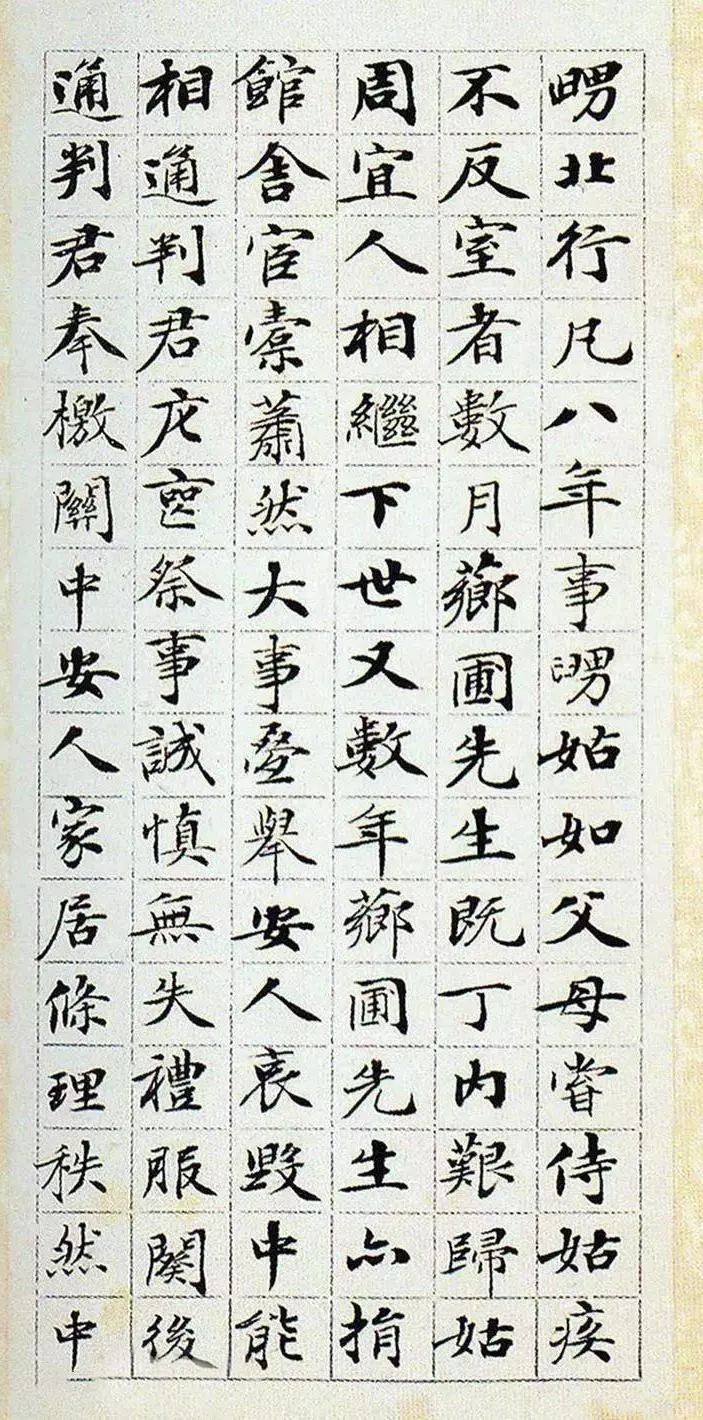 舅北行凡八年事舅姑如父母嘗侍姑疾
不反室者數月薌圃先生既丁内艱歸姑
周宜人相繼下世又數年薌圃先生亦捐
館舍宦橐蕭然大事疊舉安人哀毀中能
相通判君庀喪祭事誠慎無失禮服闋後
通判君奉檄關中安人家居條理秩然中